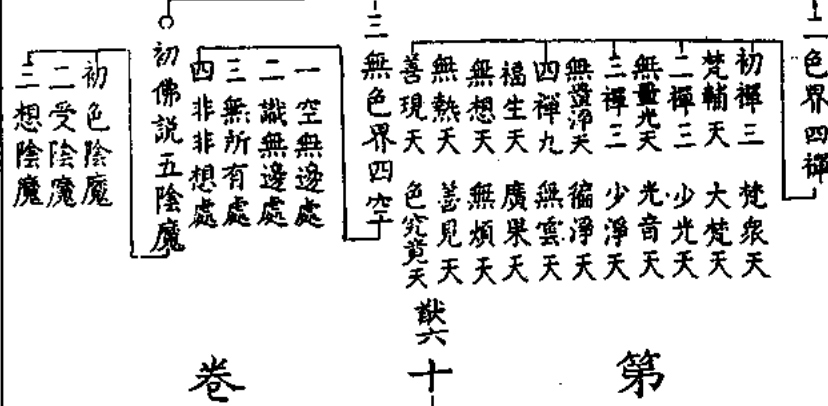 二色界四禪
初禪三 梵衆天
梵輔天 大梵天
二禪三 少光天
無量光天 光音天
三禪三 少淨天
無量淨天 徧淨天
四禪九 無雲天
福生天 廣果天
無想天 無煩天
無熱天 善見天
善現天 色究竟天
三無色界四空
一空無邊處
二識無邊處
三無所有處
四非非想處
初佛說五陰魔
初色陰魔
二受陰魔
三想陰魔
第十卷